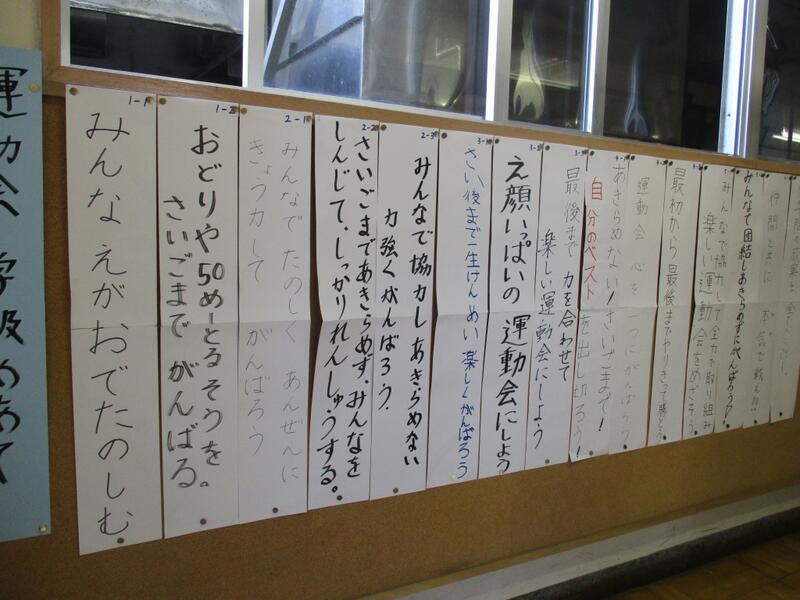 運動会 学級のめあて
1-1
みんなえがおでたのしむ
1-2
おどりや50めーとるそうを。
さいごまでがんばる。
2-1
みんなでたのしく あんぜんに
きょう力して がんばろう
2-2
さいごまであきらめず、みんなを
しんじて、しっかりれんしゅうする。
2-3
みんなで協力しあきらめない
力強くがんばろう。
さい後まで一生けんめい 楽しくがんばろう
え顔いっぱいの運動会にしよう
最後まで 力を合わせて
楽しい運動会にしよう
あきらめない!さいごまで!
自分のベストを出し切ろう!
運動会 心を一つにがんばろう
最初から最後までやりきって勝とう
みんなで協力して全力で取り組み
楽しい運動会をめざそう
みんなで団結しあきらめずにがんばろう!
仲間と共に 本気で戦え!!